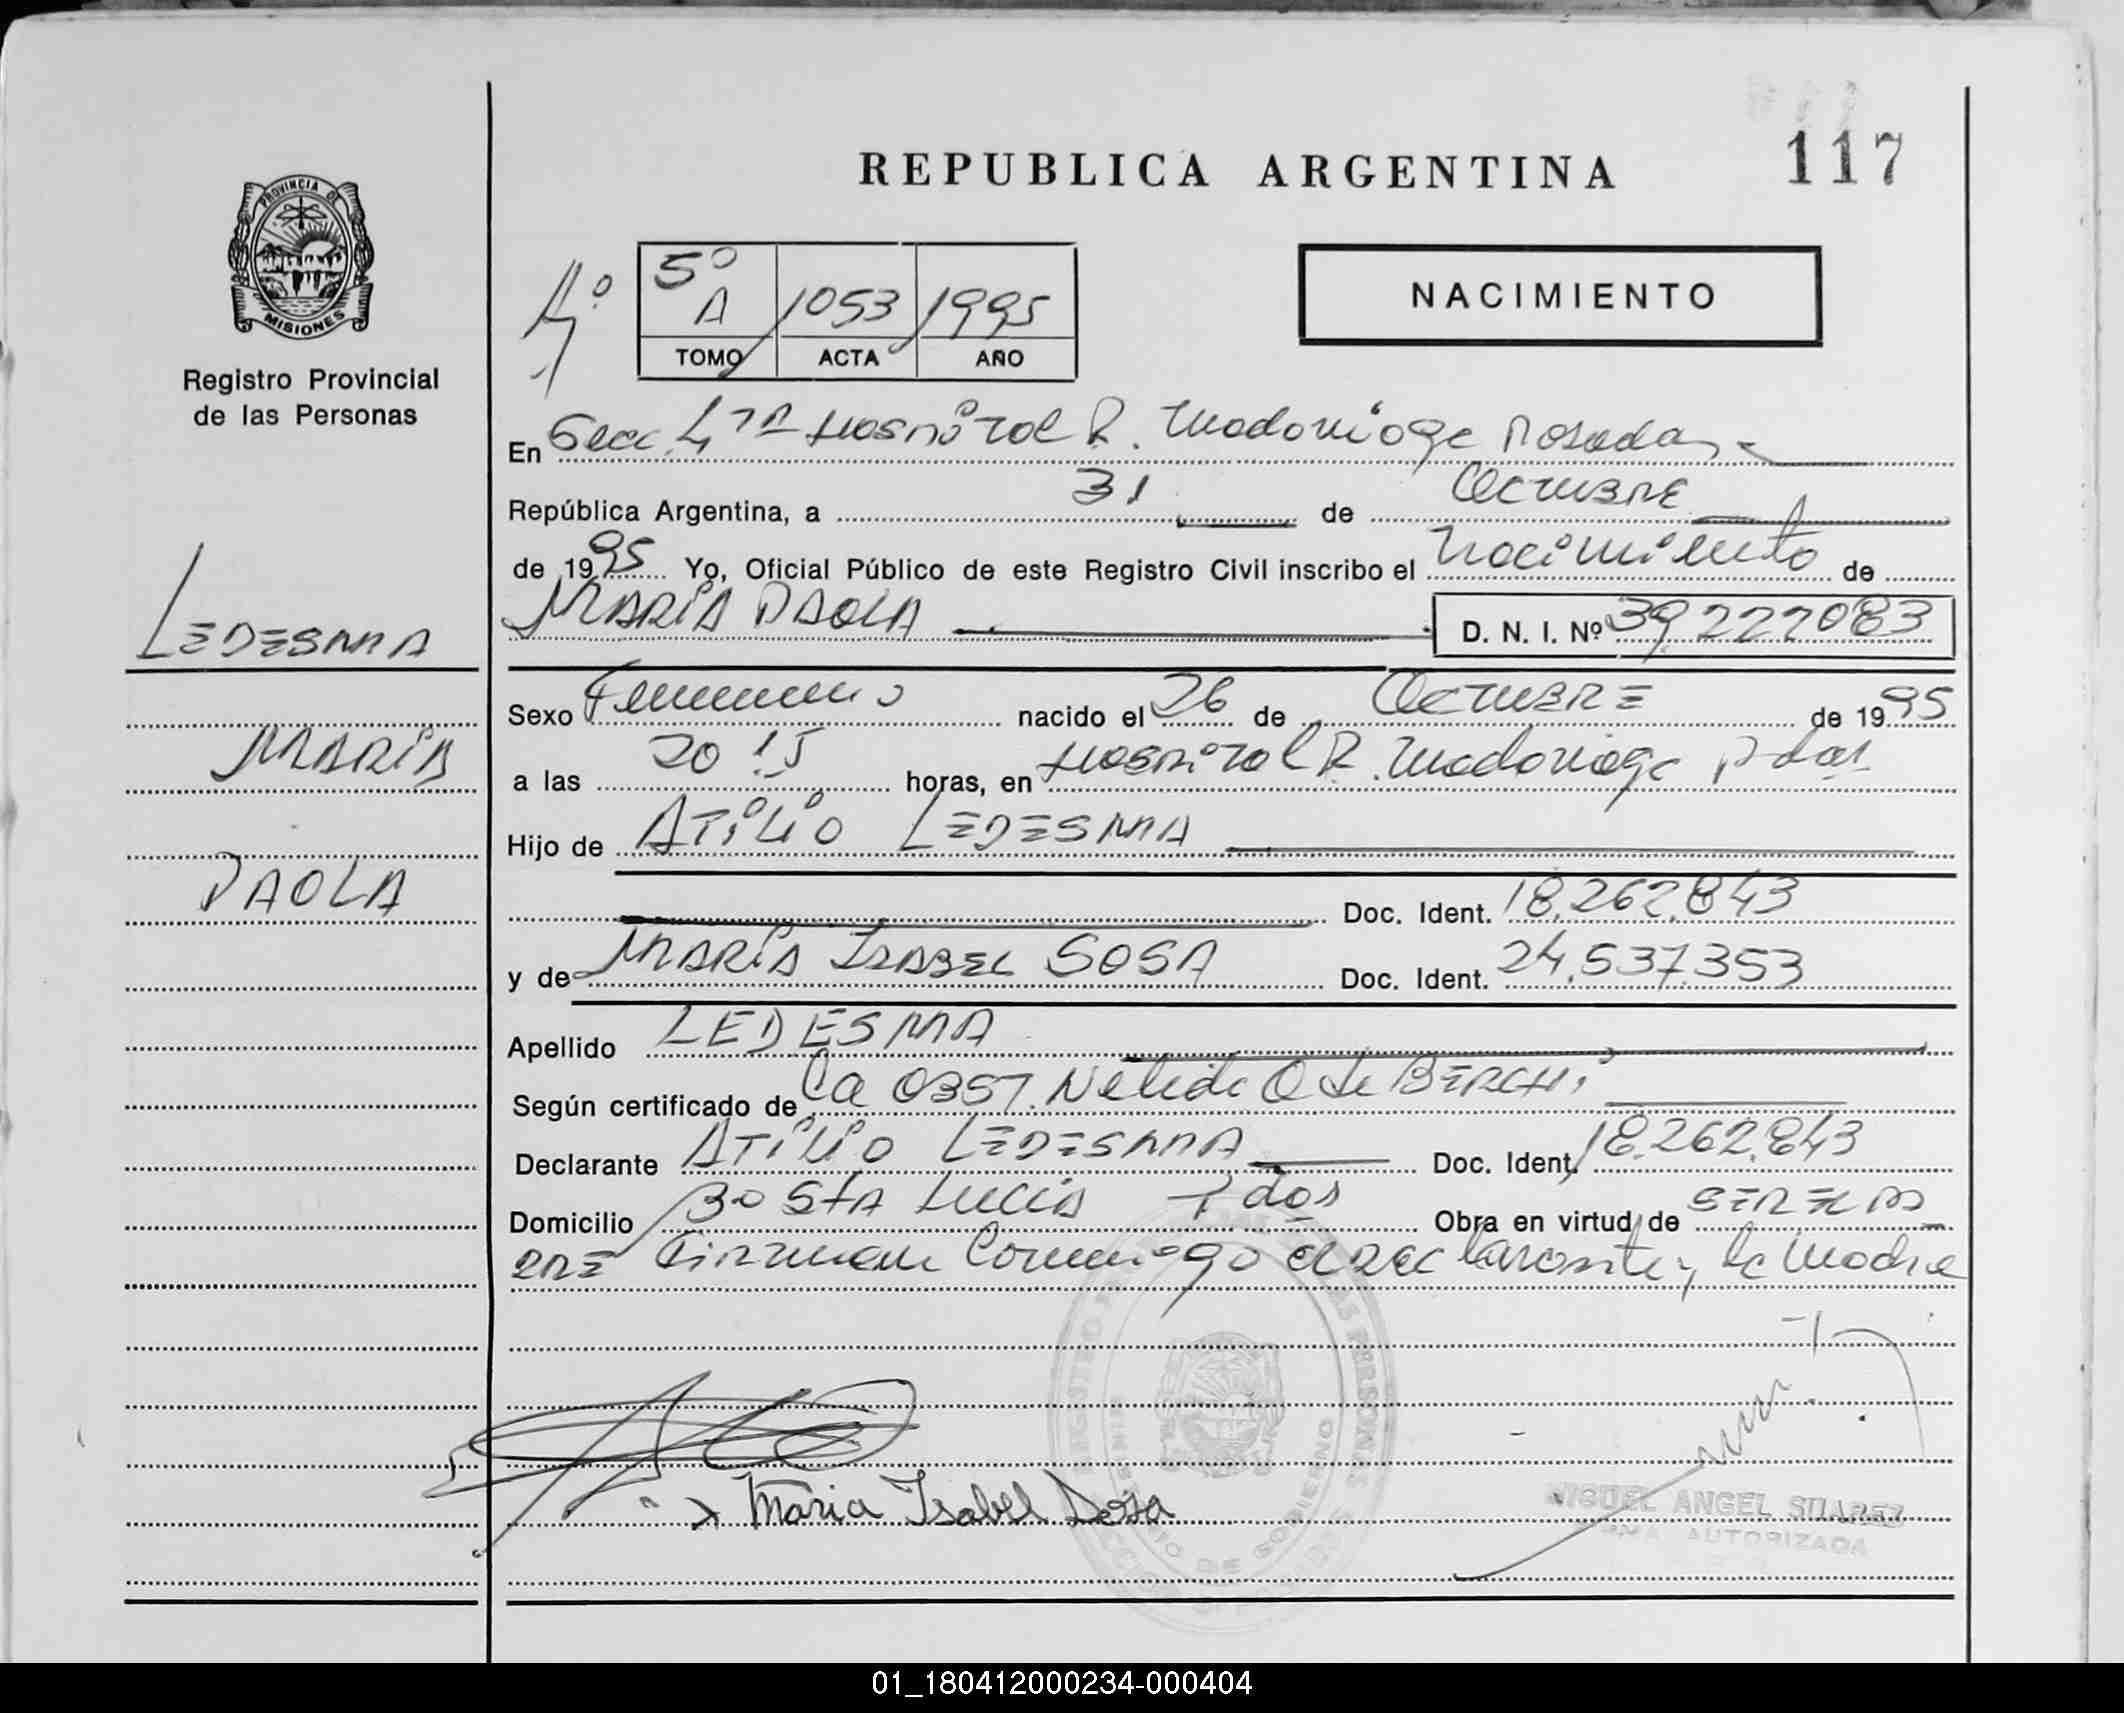 117
REPUBLICA ARGENTINA
PROVINCIA DE
MISIONES
Registro Provincial
de las Personas
NACIMIENTO
4º
5º A 1053 1995
TOMO ACTA AÑO
En Secc 4ta Hospital R. Madariaga Posadas
República Argentina, a 31 de Octubre
de 1995 Yo, Oficial Público de este Registro Civil inscribo el Nacimiento de
MARIA PAOLA D. N. I. Nº 39222083
LEDESMA
MARIA
PAOLA
Sexo Femenino nacido el 26 de Octubre de 1995
a las 20 15 horas, en Hospital R. Madariaga Pdas
Hijo de ATILIO LEDESMA
Doc. Ident. 18.262.843
y de MARIA ISABEL SOSA Doc. Ident. 24.537.353
Apellido LEDESMA
Según certificado de La 0357. Nelida O de BERCHI
Declarante ATILIO LEDESMA Doc. Ident. 18.262.843
Domicilio Bo STA LUCIA Pdas Obra en virtud de SER EL PA
DRE Firman Conmigo el declarante y la Madre
Maria Isabel Sosa
MIGUEL ANGEL SUAREZ
FIRMA AUTORIZADA
01_180412000234-000404